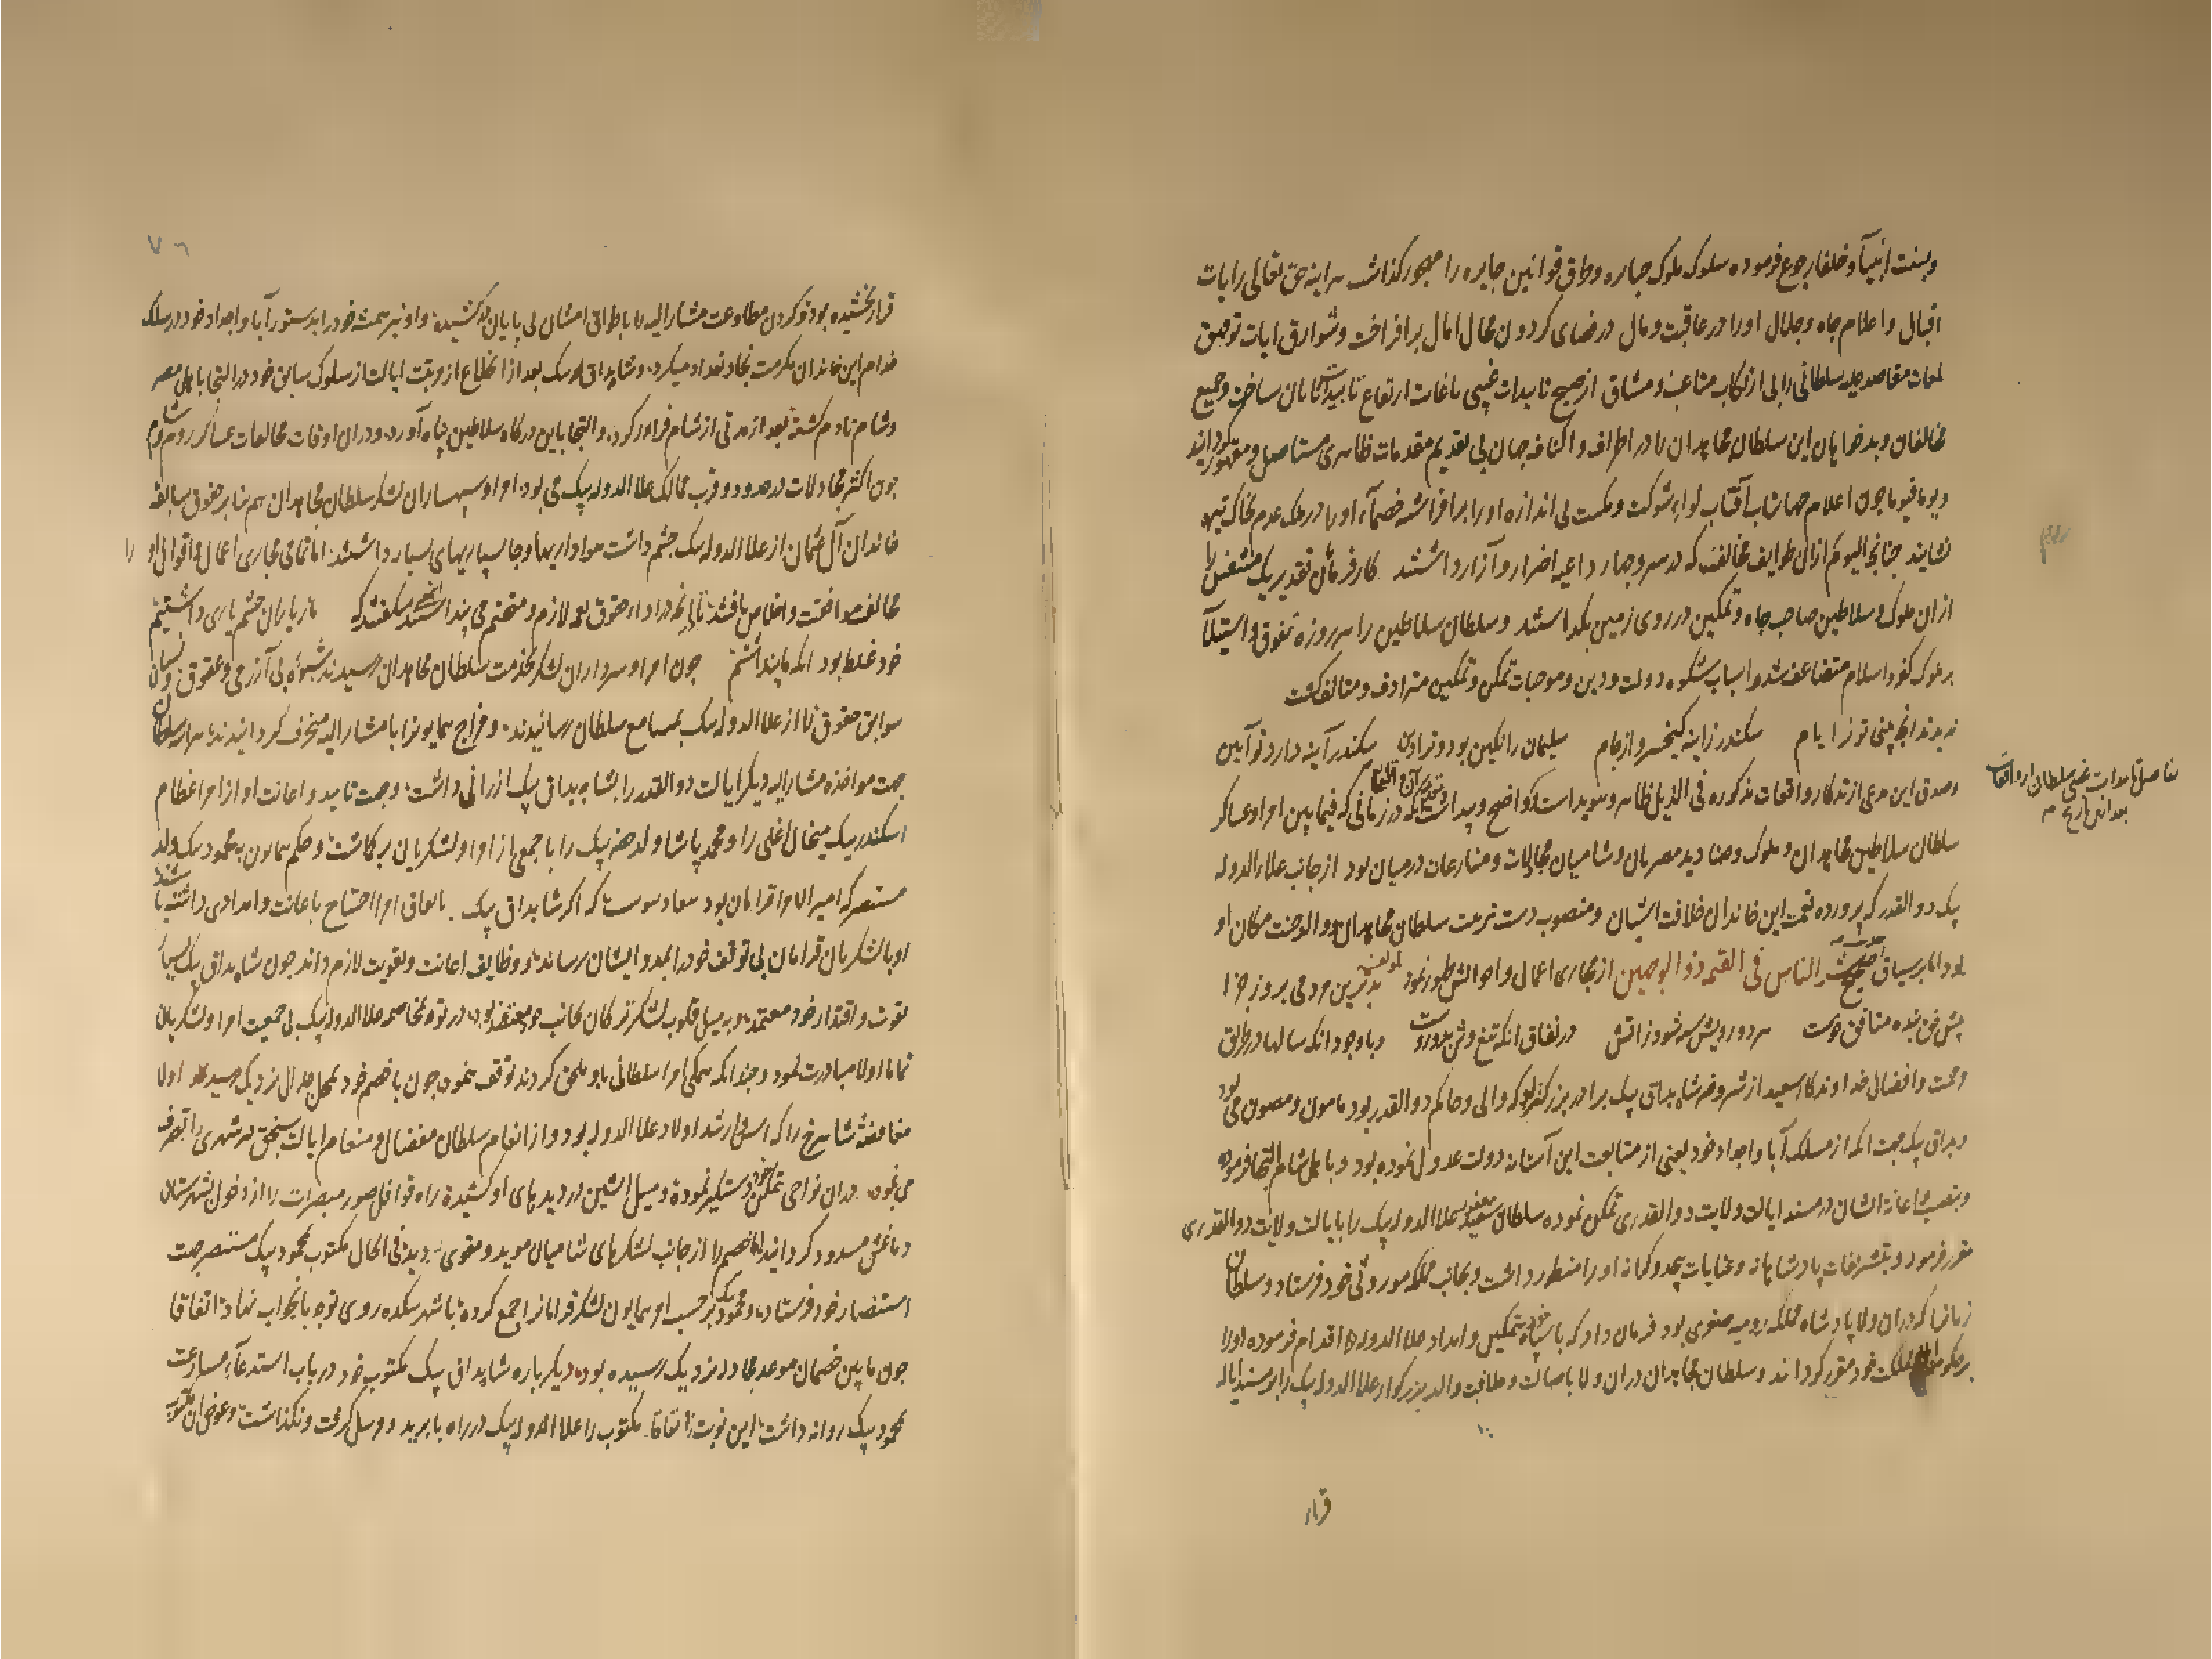 وبسنت انبیآ و خلفا رجوع فرموده سلوک ملوک جبابره وطاق قوانین جایره را مهجور کذاشت هراینه حق تعالی رایات
اقبال واعلام جاه وجلال اورا در عاقبت ومال در فضای کردون مجال امال برافراخت وشوارق ایات توفیق
لمعات مقاصد جلیه سلطانی را بی ارتکاب متاعب ومشاق از صبح تاییدات غیبی باغات ارتفاع تابان ساخت وجمیع
مخالفان وبدخواهان این سلطان مجاهدان را در اطراف واکناف جهان بی تقدیم مقدمات ظاهری مستاصل ومقهور کردانید
ویوما فیوما جون اعلام جهانتاب آفتاب لواء شوکت ومکنت بی اندازه اورا برافراشته خصمآء اورا در ملک عدم بخاک تیره
نشانید جنانجه الیوم ازان طوایف مخالفت که در سر وجهار داعیه اضرار وآزار داشتند کارفرمان تقدیر یک متنفس را
ازان ملوک وسلاطین صاحب جاه وتمکین در روی زمین نکداشتند وسلطان سلاطین را هر روزه تفوق واستیلآ
بر ملوک کفر واسلام متضاعف شد واسباب شکوه دولت ودین وموجبات تمکن وتمکین مترادف ومتالف کشت
ندیدند انج بینی تو ز ایام سکندر زاینه کیخسرو از جام سلیمان را نکین بود وترا دین سکندر آینه دارد تو آیین
وصدق این مدعی از تذکار واقعات مذکوره فی الذیل ظاهر وهویداست وواضح وپیداست که در زمانی که فیمابین امرا وعساکر
سلطان سلاطین مجاهدان وملوک وصنادید مصریان وشامیان مجادلات ومنازعات درمیان بود از جانب علاء الدوله
بیک ذو القدر که پرورده نعمت این خاندان خلافت اشیان ومنصوب دست تربیت سلطان مجاهدان ابو الوخت مکان او
بود اما بر سیاق الناس فی القیمه ذو الوجهین از مجاری اعمال واحوالش ظهور نمود بدترین مردمی بروز جزا
پیش حق بنده منافق اوست مرد دورویش سیه شود ز آتش در نفاق انکه تیغ وش دوروست وباوجود انکه سالها در طریق
ومحبت وافضال خداوندکار سعید از شر وضر شاه بداق بیک برادر بزرکتر او که والی وحاکم ذو القدر بود مامون ومصون می بود
وبداق بیک جهت انکه از مسلک آبا واجداد خود یعنی از متابعت این آستانه دولت عدول نموده بود وباهل شام التجا فرموده
وبنصب واعانة ایشان در مسند ایالت ولایت ذو القدری تمکن نموده سلطان سعید علاء الدوله بیک را بایالت ولایت ذو القدری
مقرر فرمود وبتشریفات پادشاهانه وعنایات بیحد وکرانه اورا منظور داشت وبجانب مملکه موروثی خود فرستاد وسلطان
زمانرا که دران ولا پادشاه مملکه رومیه صغری بود فرمان داد که باسپاه بتمکین وامداد علاء الدوله اقدام فرموده اورا
بر حکومت مملکت خود مقرر کرداند وسلطان مجاهدان دران ولا باصالت وخلافت والد بزرکوار علاء الدوله بیک را بر مسند ایاله
قرار
تفاصیل تاییدات غیبی سلطان از واقعات
بعد ازین تاریخ
٧٦
قرار بخشیده بود وکردن مطاوعت مشار الیه را باطواق امتنان بی پایان درکشیده واو نیز همیشه خود را بدستور آبا واجداد خود در سلک
خدام این خاندان مکرمت بنیاد تعداد میکرد وشاه بداق بیک بعد از انخلاع از وبت ایالت از سلوک سابق خود در التجا باهل مصر
وشام نادم کشته بعد از مدتی از شام فرار کرد والتجا باین درکاه سلاطین پناه آورد ودران اوقات مخالفات عساکر روم وشام
جون اکثر مجادلات در حدود وقرب ممالک علاء الدوله بیک می بود امرا وسپهساران لشکر سلطان مجاهدان هم بنا بر حقوق سابقه
خاندان آل عثمان از علاء الدوله بیک جشم داشت هواداریها وجانسپاریهای بسیار داشتند اما تمامی مجاری اعمال واقوال او را
مخالف موافقت واخلاص یافتند باانکه در اداء حقوق همه لازم ومتحتم می پنداشتند میکفتند که ما ز یاران جشم یاری داشتیم
خود غلط بود انکه ما پنداشتیم جون امرا وسرداران لشکر بخدمت سلطان مجاهدان رسیدند شیوه بی آزرمی وعقوق ونسیان
سوابق حقوق را از علاء الدوله بیک بمسامع سلطان رسانیدند ومزاج همایونرا با مشار الیه منحرف کردانیدند هراینه سلطان
جهت مواخذه مشار الیه دیکر ایالت ذو القدر را بشاه بداق بیک ارزانی داشت وجهت تایید واعانت او از امراء عظام
اسکندر بیک میخال اغلی را ومحمد پاشا ولد خضر بیک را با جمعی از امرا ولشکریان برکماشت وحکم همایون بمحمود بیک ولد
مستصر که امیر الامراء قرامان بود که اکر شاه بداق بیک باتفاق امرا احتیاج باعانت وامدادی داشته باشند
او بالشکریان قرامان بی توقف خود را بمدد ایشان رساند ووظایف اعانت وتقویت لازم داند جون شاه بداق بیک
بقوت واقتدار خود معتمد وبه میل قلوب لشکر ترکمان بجانب خود معتضد بود در توجه بمخاصمه علاء الدوله بیک بی جمعیت امرا ولشکریان
اولا مبادرت نمود وجندانکه همکی امراء سلطانی باو ملحق کردند توقف ننمود جون با خصم خود بمحل جدال نزدیک رسید اولا
مغافصة شاهرخ را که ارشد اولاد علاء الدوله بود واز انعام سلطان مفضال ومنعام ایالت سنجق قیرشهری را تصرف
می نمود دران نواحی دستکیر نموده ومیل اتشین در دیدهای او کشیده راه قوافل صور مبصرات را از دخول شهرستان
دماغش مسدود کردانید اما خصم را از جانب لشکرهای شامیان موید ومقوی دید فی الحال مکتوب بمحمود بیک مستصر جهت
استنصار خود فرستاد ومحمود بیک بر حسب امر همایون لشکر قرامانرا جمع کرده با شهر سکده روی توجه بانجواب نهاد اتفاقا
جون مابین خصمان موعد مجادله نزدیک رسیده بود دیکرباره شاه بداق بیک مکتوب خود در باب استدعآء مسارعت
محمود بیک روانه داشت این نوبت اتفاقا مکتوب را علاء الدوله بیک در راه بابرید ومرسل کرفت ونکذاشت وعوض ان مکتوب